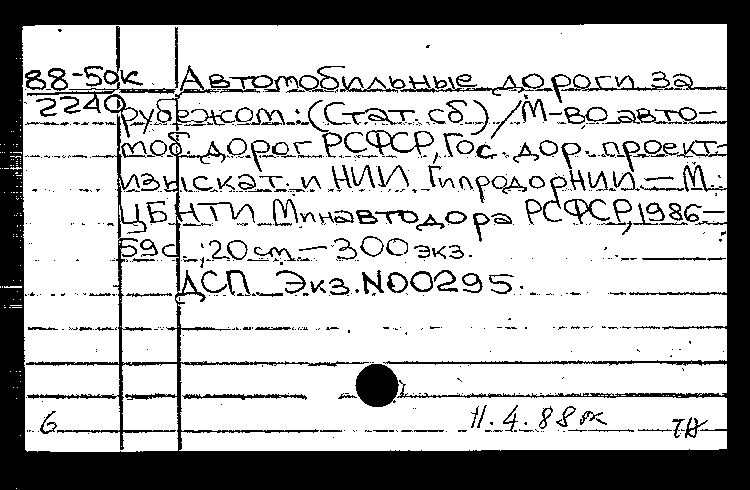 88-50к Автомобильные дороги за
2240 рубежом: (Стат. сб) / М-во авто-
моб. дорог РСФСР, Гос. дор. проект.-
изыскат. и НИИ Гипродорнии. — М.:
ЦБНТИ Минавтодора РСФСР, 1986 —
59с. ; 20 см — 300 экз.
ДСП Экз. N00295.
6 11.4.88